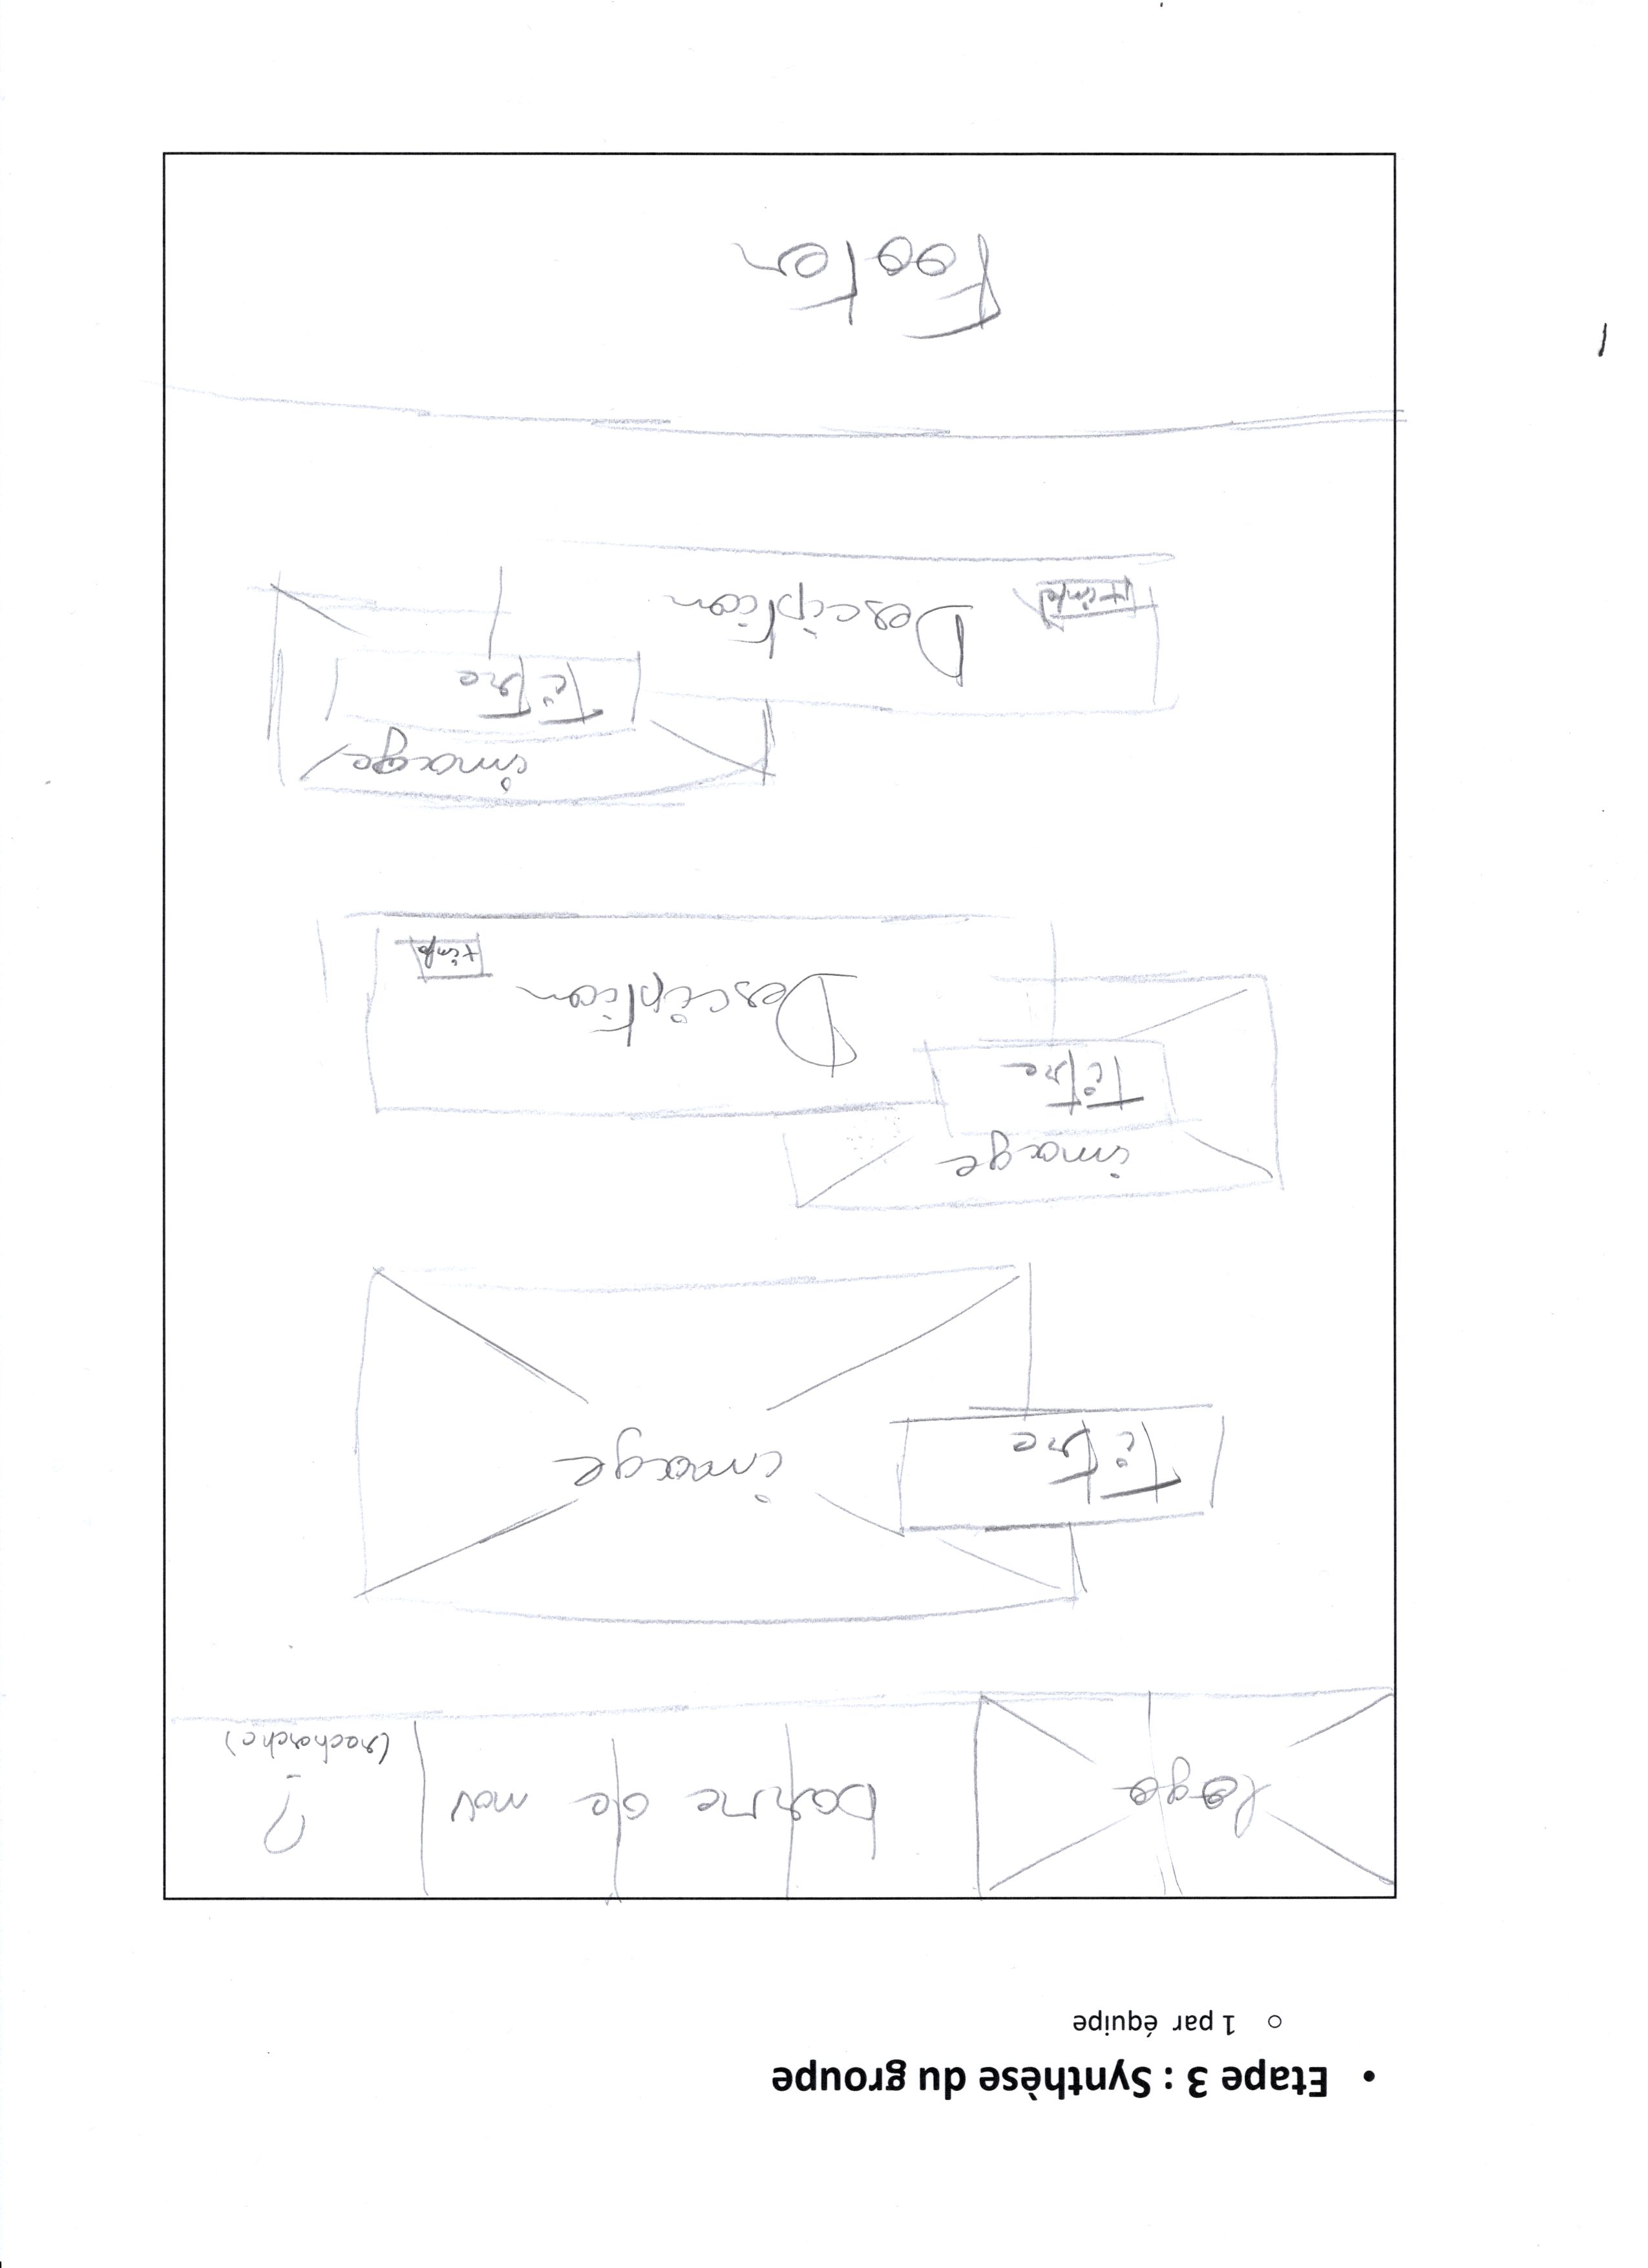 • Etape 3 : Synthèse du groupe
o 1 par équipe
logo barre de nav ?
(recherche)
Titre image
image
Titre
Desciption
+info
image
Titre
Desciption
+info
Footer